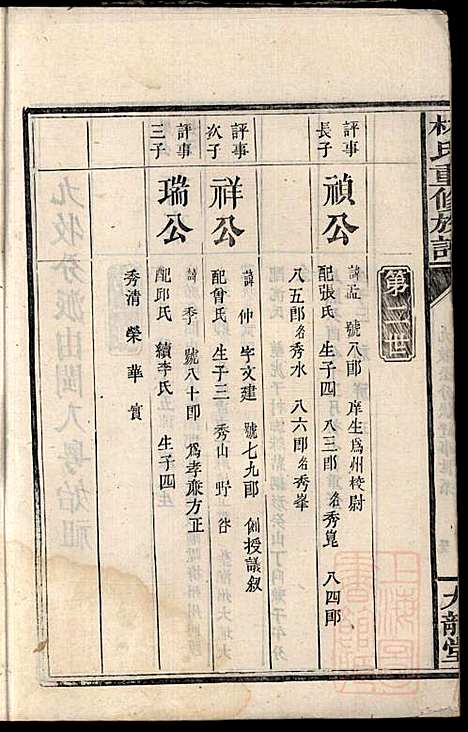 林氏重修族譜
九龍堂
第二世
評事長子
禎公
諱孟 號八郎 庠生爲州校尉
配張氏 生子四 八三郎名秀崑 八四郎
八五郎名秀水 八六郎名秀峯
評事次子
祥公
諱仲 字文建 號七九郎 創授議叙
配曾氏 生子三 秀山 野 谷
評事三子
瑞公
諱季 號八十郎 爲孝亷方正
配邱氏 續李氏 生子四
秀清 榮 華 實
九牧分派由閩入粤始祖